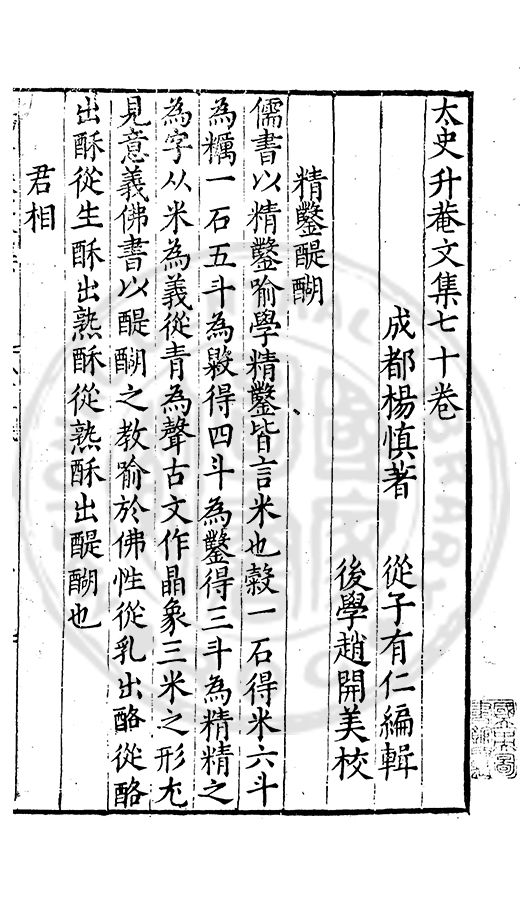 太史升菴文集七十卷
成都楊慎著　從子有仁編輯
後學趙開美校
精鑿醍醐
儒書以精鑿喻學精鑿皆言米也穀一石得米六斗
為糲一石五斗為毇得四斗為鑿得三斗為精精之
為字从米為義從青為聲古文作晶象三米之形尤
見意義佛書以醍醐之教喻於佛性從乳出酪從酪
出酥從生酥出熟酥從熟酥出醍醐也
君相